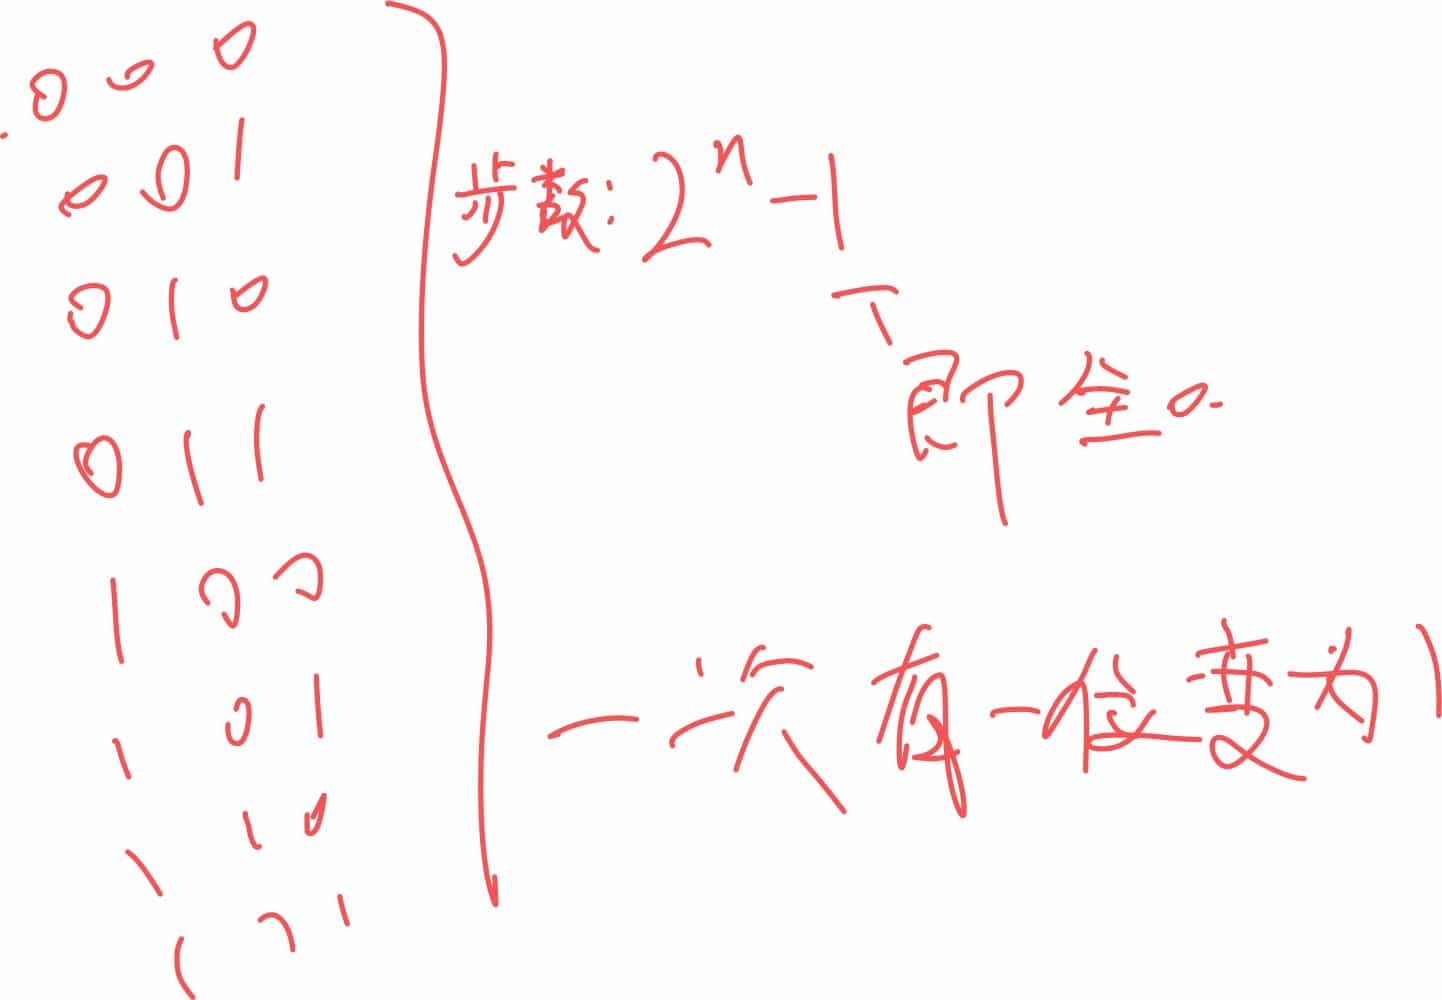 000
001
010
011
100
101
110
111
步数:2^n-1
即全0.
一次有一位变为1